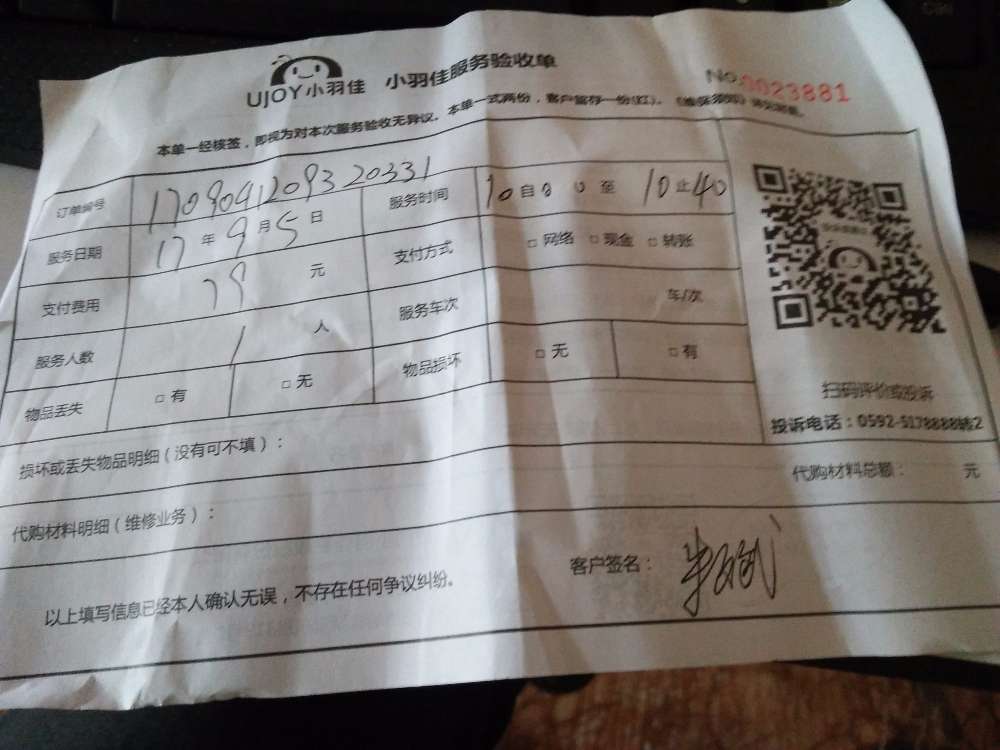 UJOY小羽佳 小羽佳服务验收单
No.0023881
本单一经核签，即视为对本次服务验收无异议。本单一式两份，客户留存一份(红)。
订单编号 170904120932 0331 服务时间 10自00至10止40
服务日期 17年9月5日 支付方式 □ 网络 □ 现金 □ 转账
支付费用 79 元 服务车次 车/次
服务人数 1 人 物品损坏 □ 无 □ 有
物品丢失 □ 有 □ 无
扫码评价或投诉
投诉电话：0592-5178888转2
损坏或丢失物品明细（没有可不填）：
代购材料明细（维修业务）： 代购材料总额： 元
以上填写信息已经本人确认无误，不存在任何争议纠纷。 客户签名：